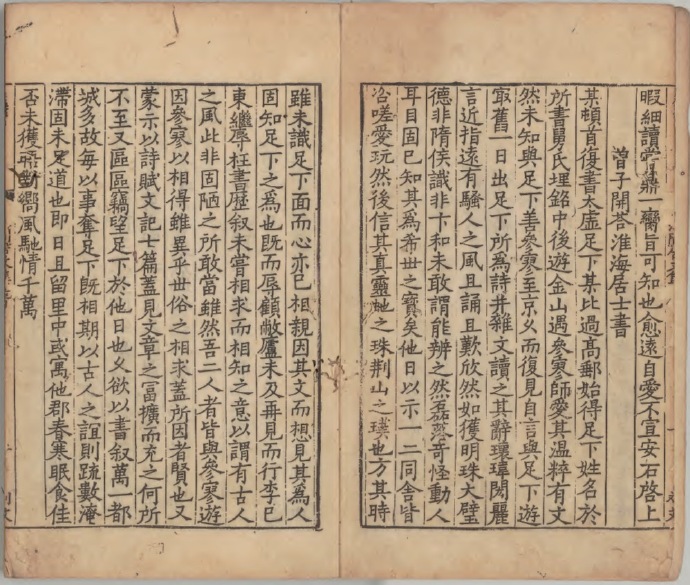 暇細讀嘗鼎一臠旨可知也愈遠自愛不宣安石啓上
曾子開荅淮海居士書
某頓首復書太虛足下某比過高郵始得足下姓名於
所書舅氏埋銘中後遊金山遇參寥師愛其溫粹有文
然未知與足下善參寥至京乆而復見自言與足下遊
㝡舊一日出足下所爲詩并雜文讀之其辭瓌瑋閎麗
言近指遠有騷人之風且誦且歎欣然如獲明珠大璧
德非隋侯識非卞和未敢謂能辨之然磊落奇怪動人
耳目固已知其爲希世之寶矣他日以示一二同舍皆
咨嗟愛玩然後信其真靈虵之珠荆山之璞也方其時
雖未識足下面而心亦已相親因其文而想見其爲人
固知足下之爲也既而辱顧敝廬未及再見而行李已
東繼辱枉書歷叙未嘗相求而相知之意以謂有古人
之風此非固陋之所敢當雖然吾二人者皆與參寥遊
因參寥以相得雖異乎世俗之相求蓋所因者賢也又
蒙示以詩賦文記七篇蓋見文章之冨擴而充之何所
不至又區區竊望足下於他日也乆欲以書叙萬一都
城多故每以事奪足下既相期以古人之誼則疏數淹
滯固未足道也即日且留里中或寓他郡春寒眠食佳
否未獲瞻對嚮風馳情千萬